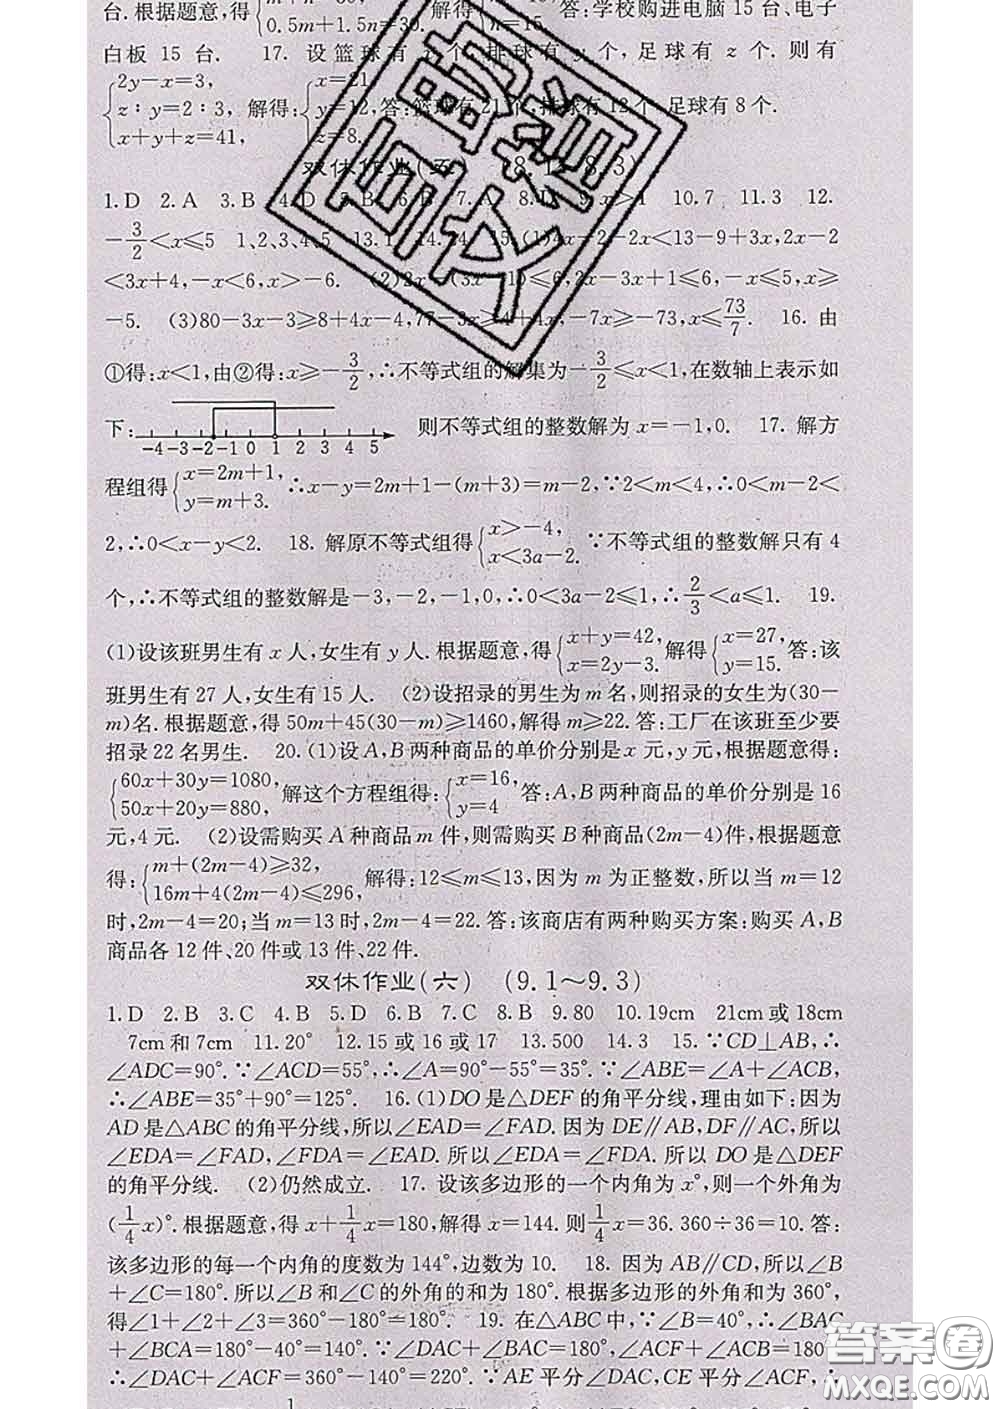 台. 根据题意,得 0.5m+1.5n=30. 解得 n=15. 答:学校购进电脑 15 台、电子
白板 15 台. 17. 设篮球有 x 个,排球有 y 个,足球有 z 个. 则有
2y-x=3,
z:y=2:3,
x+y+z=41,
解得:
x=21
y=12,
z=8.
答:篮球有 21 个,排球有 12 个,足球有 8 个.
双休作业(五) (8.1~8.3)
1.D 2.A 3.B 4.D 5.B 6.B 7.A 8.D 9.x>1 10.7 11.3 12.
-3/2<x≤5 1、2、3、4、5 13.1 14.14 15.(1)4x-2-2x<13-9+3x,2x-2
<3x+4,-x<6,x>-6. (2)2x-(3x-1)≤6,2x-3x+1≤6,-x≤5,x≥
-5. (3)80-3x-3≥8+4x-4,77-3x≥4+4x,-7x≥-73,x≤73/7. 16. 由
①得:x<1,由②得:x≥-3/2,∴不等式组的解集为-3/2≤x<1,在数轴上表示如
下: -4 -3 -2 -1 0 1 2 3 4 5 则不等式组的整数解为 x=-1,0. 17. 解方
程组得{x=2m+1, y=m+3. ∴x-y=2m+1-(m+3)=m-2,∵2<m<4,∴0<m-2<
2,∴0<x-y<2. 18. 解原不等式组得{x>-4, x<3a-2. ∵不等式组的整数解只有 4
个,∴不等式组的整数解是-3,-2,-1,0,∴0<3a-2≤1,∴2/3<a≤1. 19.
(1)设该班男生有 x 人,女生有 y 人. 根据题意,得{x+y=42, x=2y-3. 解得{x=27, y=15. 答:该
班男生有 27 人,女生有 15 人. (2)设招录的男生为 m 名,则招录的女生为(30-
m)名. 根据题意,得 50m+45(30-m)≥1460,解得 m≥22. 答:工厂在该班至少要
招录 22 名男生. 20. (1)设 A,B 两种商品的单价分别是 x 元,y 元,根据题意得:
{60x+30y=1080, 50x+20y=880, 解这个方程组得:{x=16, y=4 答:A,B 两种商品的单价分别是 16
元,4 元. (2)设需购买 A 种商品 m 件,则需购买 B 种商品(2m-4)件,根据题意
得:{m+(2m-4)≥32, 16m+4(2m-4)≤296, 解得:12≤m≤13,因为 m 为正整数,所以当 m=12
时,2m-4=20;当 m=13 时,2m-4=22. 答:该商店有两种购买方案:购买 A,B
商品各 12 件、20 件或 13 件、22 件.
双休作业(六) (9.1~9.3)
1.D 2.B 3.C 4.B 5.D 6.B 7.C 8.B 9.80 10.19cm 21cm 或 18cm
7cm 和 7cm 11.20° 12.15 或 16 或 17 13.500 14.3 15.∵CD⊥AB,∴
∠ADC=90°.∵∠ACD=55°,∴∠A=90°-55°=35°.∵∠ABE=∠A+∠ACB,
∴∠ABE=35°+90°=125°. 16.(1)DO 是△DEF 的角平分线,理由如下:因为
AD 是△ABC 的角平分线,所以∠EAD=∠FAD. 因为 DE∥AB,DF∥AC,所以
∠EDA=∠FAD,∠FDA=∠EAD. 所以∠EDA=∠FDA. 所以 DO 是△DEF
的角平分线. (2)仍然成立. 17. 设该多边形的一个内角为 x°,则一个外角为
(1/4x)°.根据题意,得 x+1/4x=180,解得 x=144. 则1/4x=36.360÷36=10. 答:
该多边形的每一个内角的度数为 144°,边数为 10. 18. 因为 AB∥CD,所以∠B
+∠C=180°. 所以∠B 和∠C 的外角的和为 180°. 根据多边形的外角和为 360°,
得∠1+∠2+∠3=360°-180°=180°. 19. 在△ABC 中,∵∠B=40°,∴∠BAC
+∠BCA=180°-40°=140°. ∵∠DAC+∠BAC=180°,∠ACF+∠BCA=180°
∴∠DAC+∠ACF=360°-140°=220°. ∵AE 平分∠DAC,CE 平分∠ACF,∴
答案圈
MXQE.COM